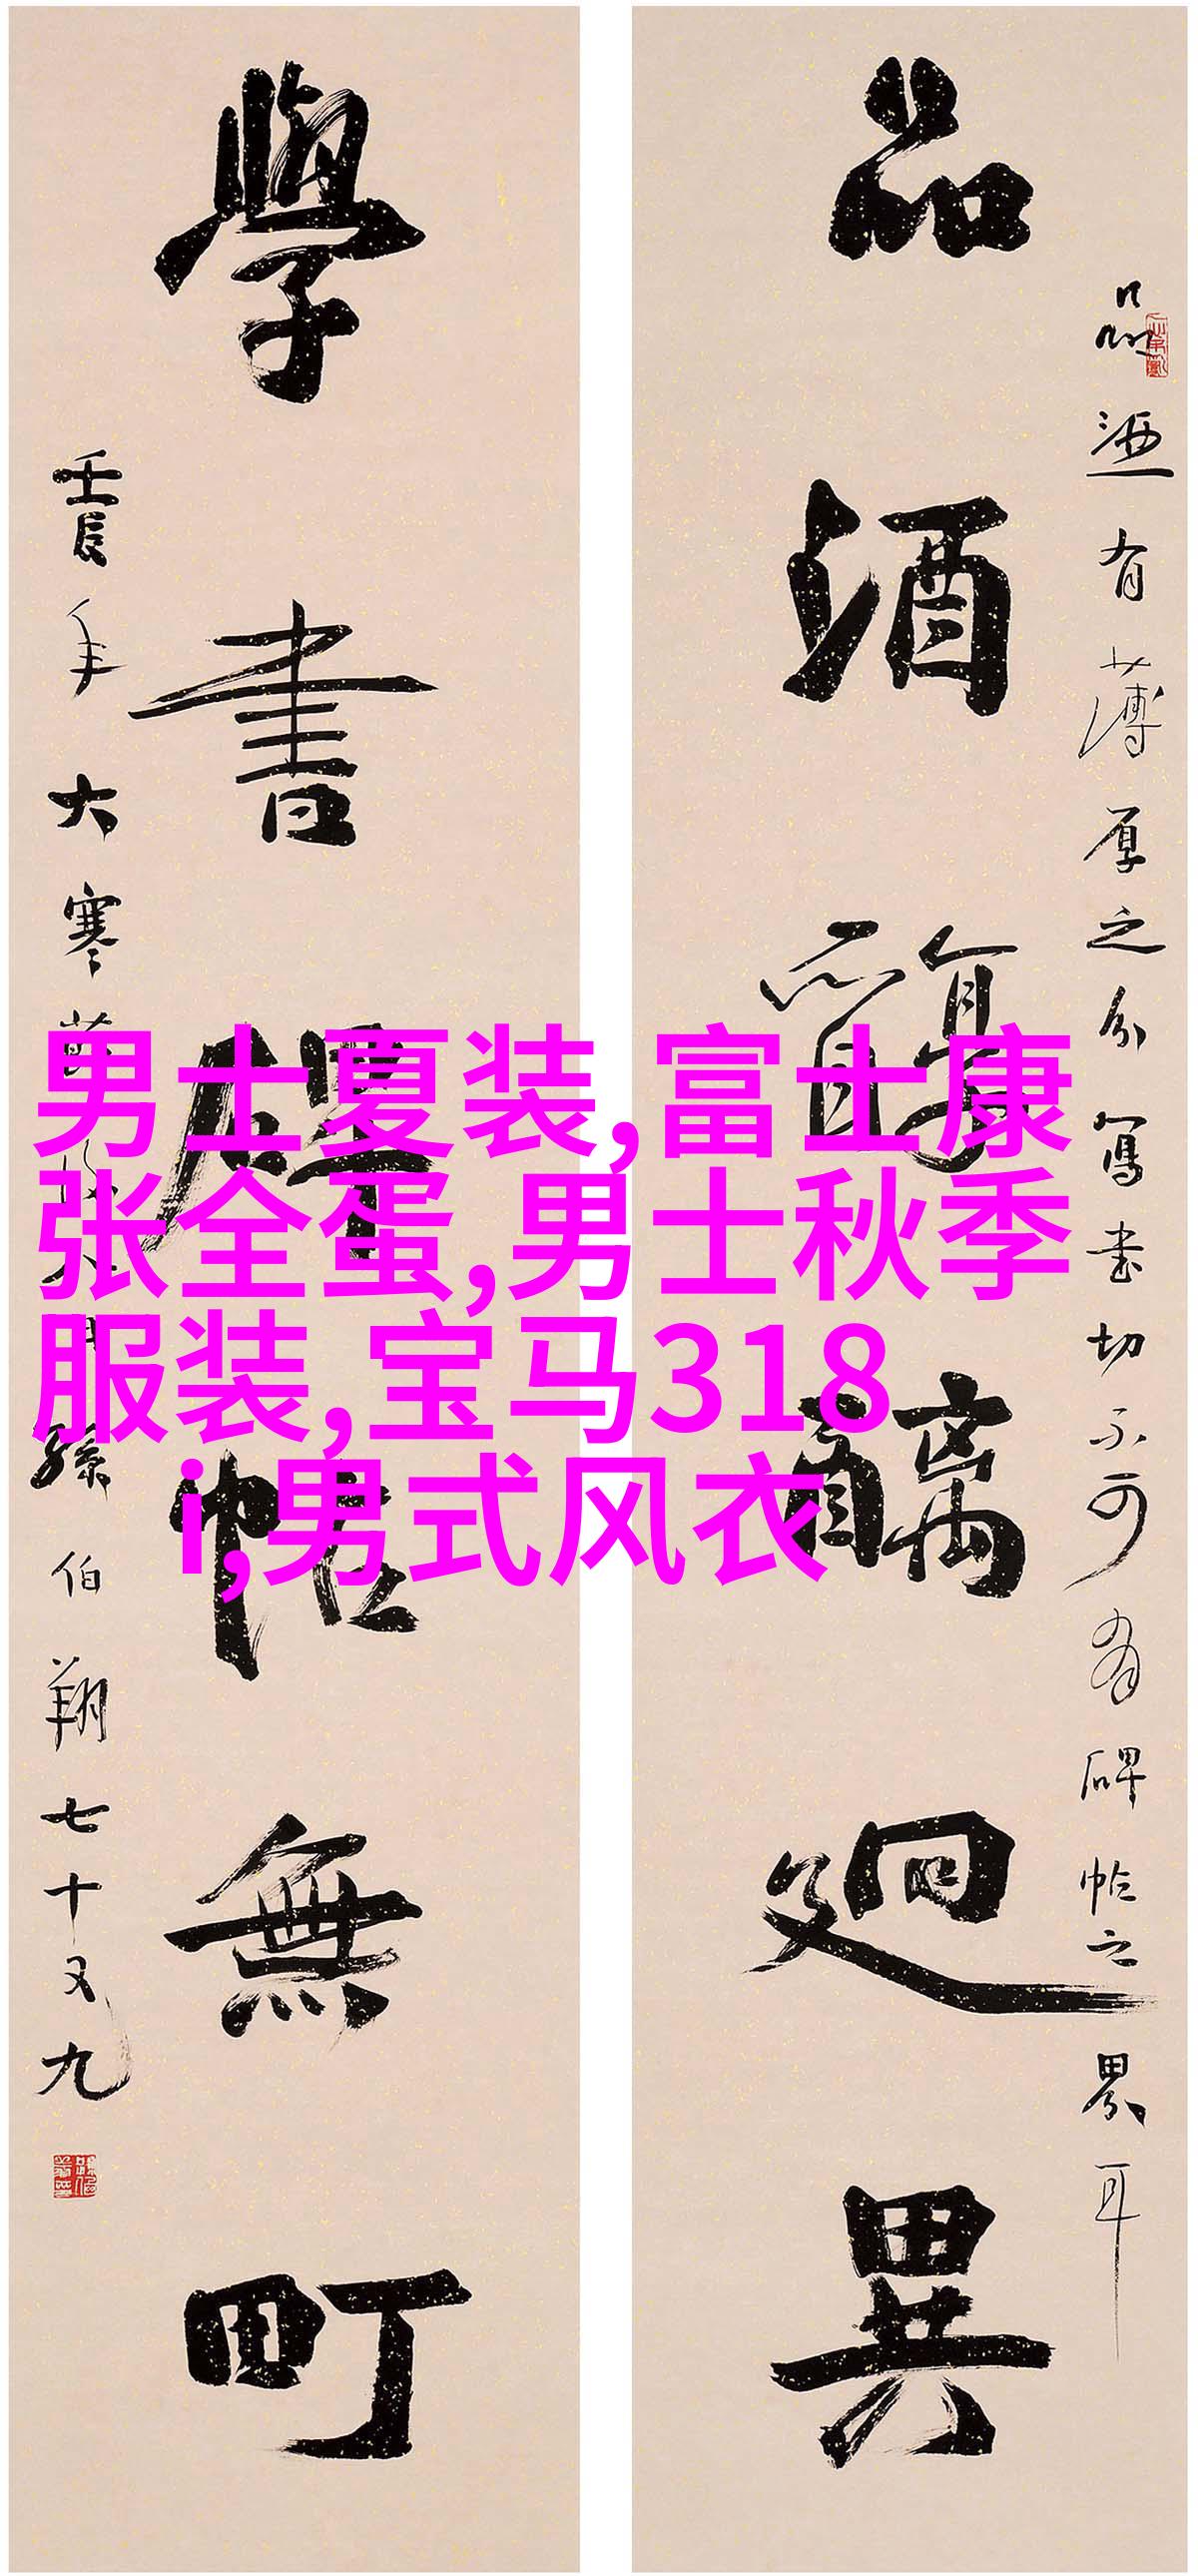 品酒有薄厚之分寫書切不可有碑帖之界耳
品酒醇醨迥異
學書碑帖無町
壬辰年大寒孫伯翔七十又九
男士夏装,富士康
张全蛋,男士秋季
服装,宝马318
i,男式风衣